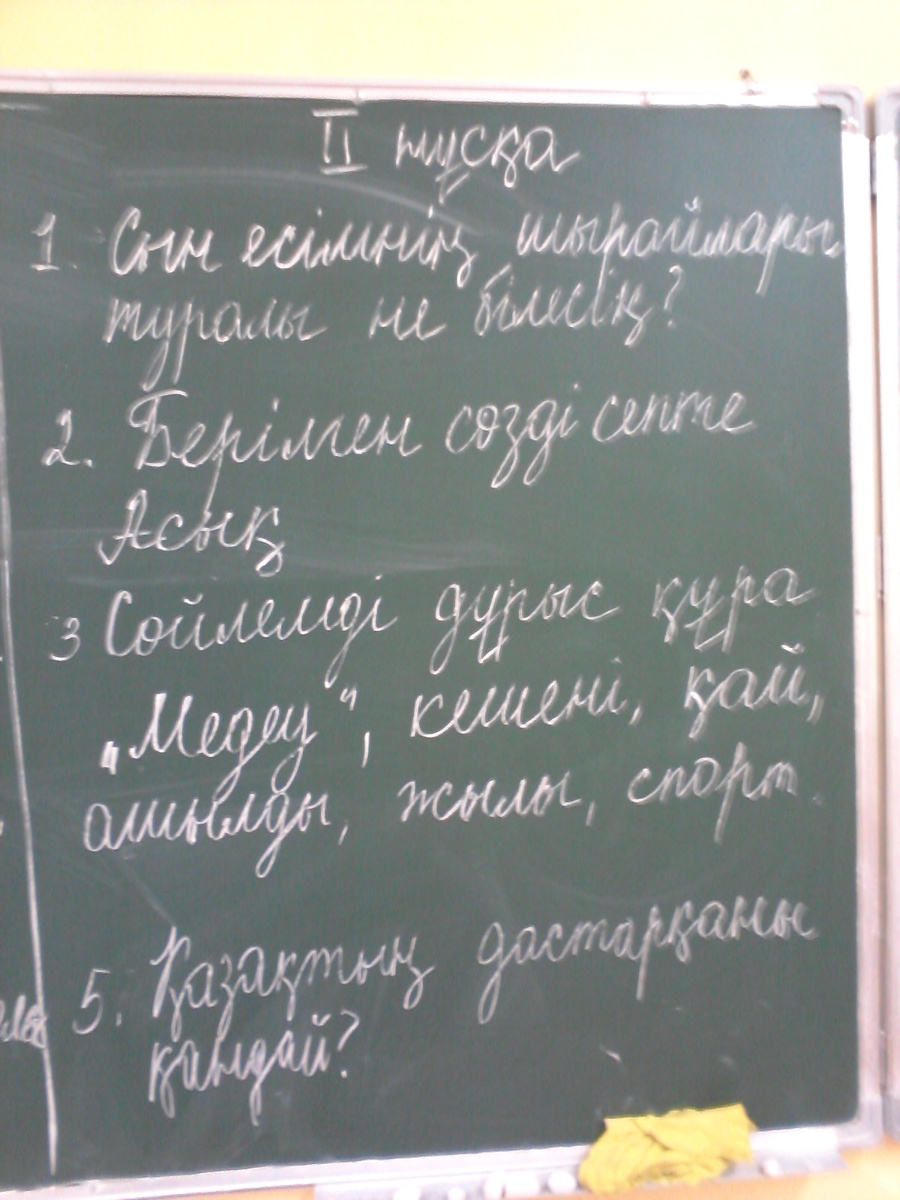 II нұсқа
1. Сын есімнің шырайлары
туралы не білесің?
2. Берілген сөзді септе
Асық
3 Сөйлемді дұрыс құра
„Медеу“, кешені, қай,
ашылды, жылы, спорт.
5. Қазақтың дастарқаны
қандай?